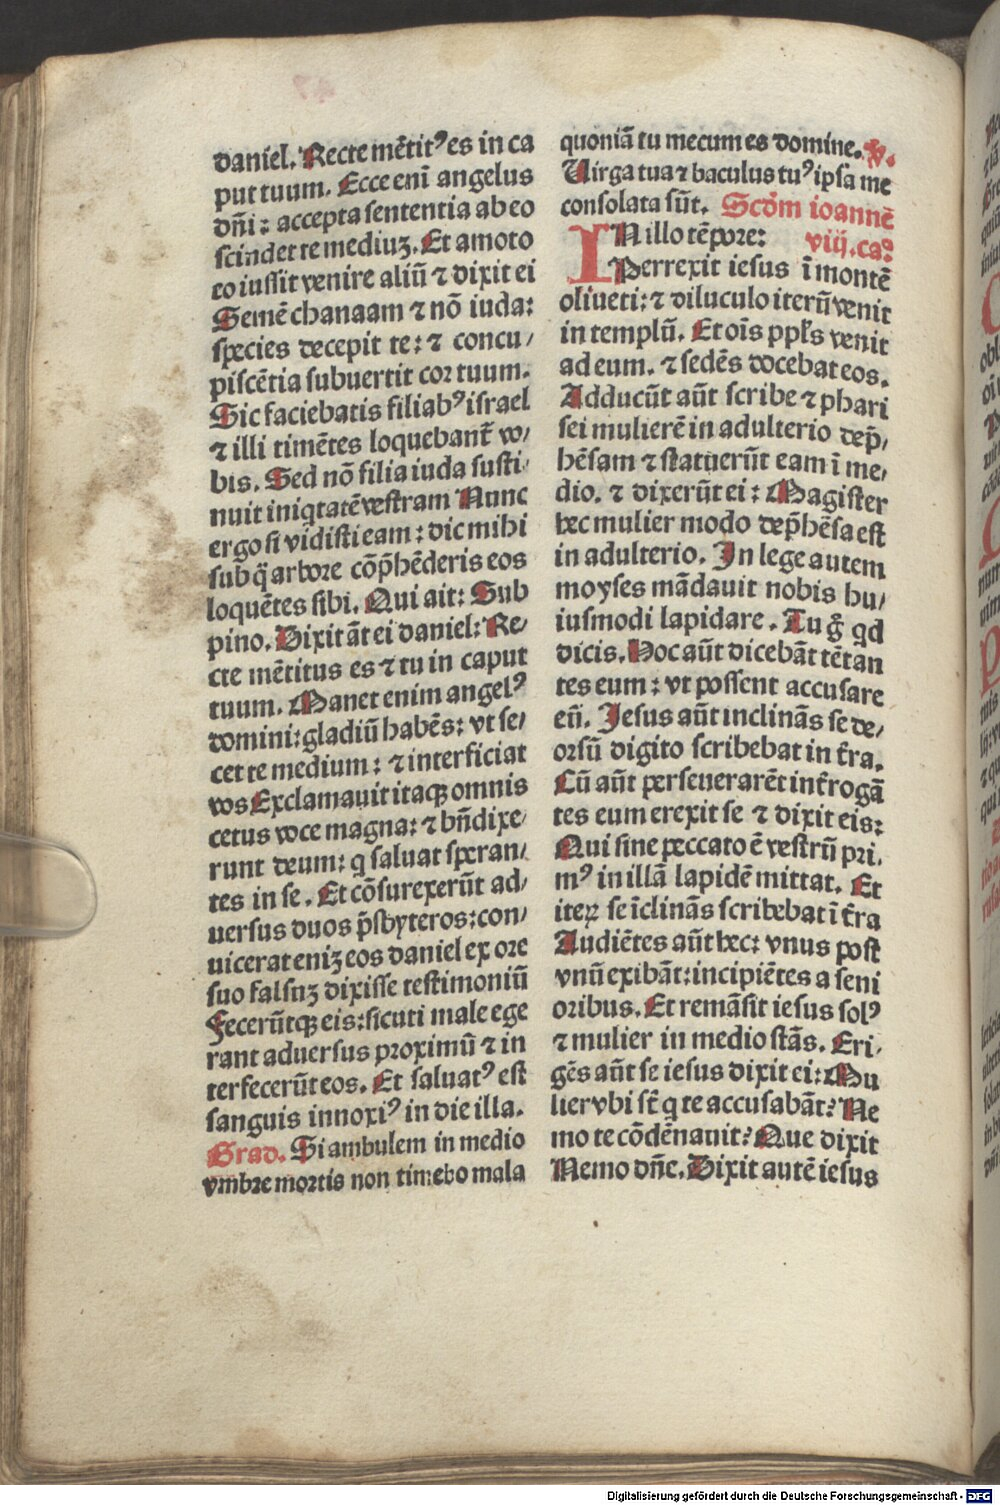 daniel. Recte mẽtitꝰ es in ca
put tuum. Ecce enĩ angelus
dñi: accepta sententia ab eo
scindet te mediuʒ. Et amoto
eo iussit venire aliũ ⁊ dixit ei
Semẽ chanaam ⁊ nõ iuda:
species decepit te: ⁊ concu⸗
piscẽtia subuertit cor tuum.
Sic faciebatis filiabꝰ israel
⁊ illi timẽtes loquebant̃ vo⸗
bis. Sed nõ filia iuda susti⸗
nuit iniqtatẽ vestram Nunc
ergo si vidisti eam: dic mihi
sub q̃ arbore cõp̃hẽderis eos
loquẽtes sibi. Qui ait: Sub
pino. Dixit ãt ei daniel: Re⸗
cte mẽtitus es ⁊ tu in caput
tuum. Manet enim angelꝰ
domini: gladiũ habẽs: vt se⸗
cet te medium: ⁊ interficiat
vos Exclamauit itaqꝫ omnis
cetus voce magna: ⁊ bñdixe⸗
runt deum: q saluat speran⸗
tes in se. Et cõsurexerũt ad⸗
uersus duos p̃sbyteros: con⸗
uicerat eniʒ eos daniel ex ore
suo falsuʒ dixisse testimoniũ
Fecerũtqꝫ eis: sicuti male ege
rant aduersus proximũ ⁊ in
terfecerũt eos. Et saluatꝰ est
sanguis innoxiꝰ in die illa.
Grad. Si ambulem in medio
vmbre mortis non timebo mala
quoniã tu mecum es domine. v.
Uirga tua ⁊ baculus tuꝰ ipsa me
consolata sũt. Scd̃m ioannẽ
IN illo tẽpore: viij. ca°
Perrexit iesus ĩ montẽ
oliueti: ⁊ diluculo iterũ venit
in templũ. Et oĩs ppl̃s venit
ad eum. ⁊ sedẽs docebat eos.
Adducũt aũt scribe ⁊ phari
sei mulierẽ in adulterio dep̃⸗
hẽsam ⁊ statuerũt eam ĩ me⸗
dio. ⁊ dixerũt ei: Magister
hec mulier modo dep̃hẽsa est
in adulterio. In lege autem
moyses mãdauit nobis hu⸗
iusmodi lapidare. Tu g̃ qd
dicis. Hoc aũt dicebãt tẽtan
tes eum: vt possent accusare
eũ. Jesus aũt inclinãs se de⸗
orsũ digito scribebat in t̃ra.
Cũ aũt perseuerarẽt int̃rogã
tes eum erexit se ⁊ dixit eis:
Qui sine peccato ẽ vestrũ pri.
mꝰ in illã lapidẽ mittat. Et
iteꝝ se ĩclinãs scribebat ĩ t̃ra
Audiẽtes aũt hec: vnus post
vnũ exibãt: incipiẽtes a seni
oribus. Et remãsit iesus solꝰ
⁊ mulier in medio stãs. Eri⸗
gẽs aũt se iesus dixit ei: Mu
lier vbi st̃ q te accusabãt? Ne
mo te cõdẽnauit? Que dixit
Nemo dñe. Dixit autẽ iesus
Digitalisierung gefördert durch die Deutsche Forschungsgemeinschaft - DFG